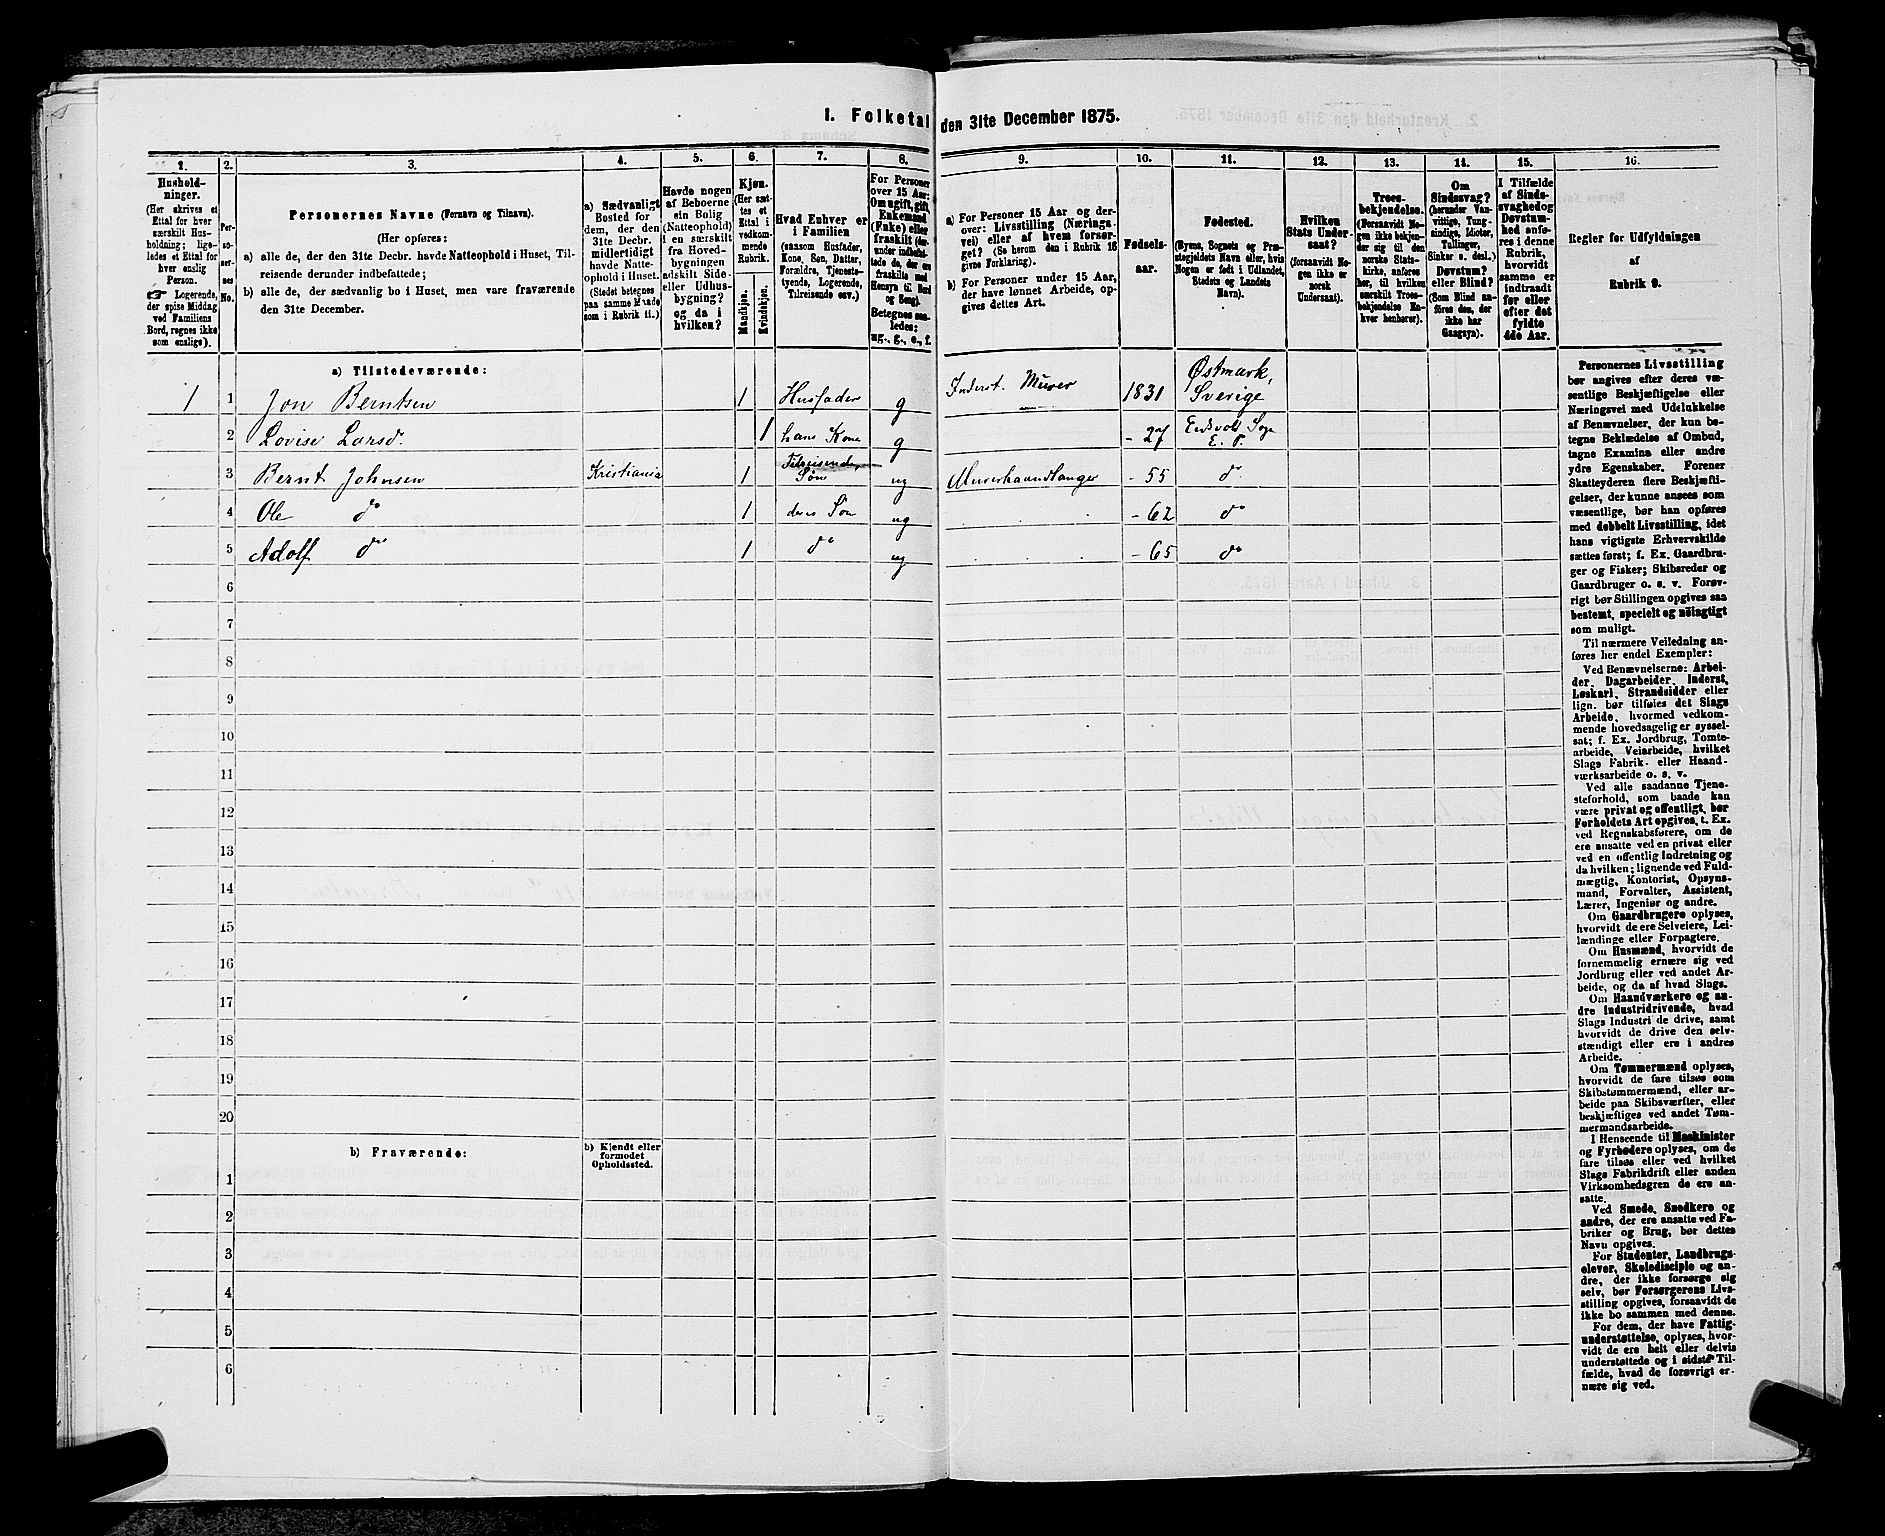 I. Folketal den 31te December 1875.
1. 2. 3. 4. 5. 6. 7. 8. 9. 10. 11. 12. 13. 14. 15. 16.
Hushold-
ninger.
(Her skrives et
Ettal for hver
særskilt Hus-
holdning; lige-
ledes et Ettal for
hver enslig
Person.
☞ Logerende,
der spise Middag
ved Familiens
Bord, regnes ikke
som enslige).
Per-
so-
ner-
nes
No.
Personernes Navne (Fornavn og Tilnavn).
(Her opføres:
a) alle de, der den 31te Decbr. havde Natteophold i Huset, Til-
reisende derunder indbefattede;
b) alle de, der sædvanlig bo i Huset, men vare fraværende
den 31te December.
a) Sædvanligt
Bosted for
dem, der den
31te Decbr.
midlertidigt
havde Natte-
ophold i Huset.
(Stedet betegnes
paa samme Maade
som i Rubrik 11.)
Havde nogen
af Beboerne
sin Bolig
(Natteophold)
i en særskilt
fra Hoved-
bygningen
adskilt Side-
eller Udhus-
bygning?
og da i
hvilken?
Kjøn.
(Her sæt-
tes et
Ettal i
vedkom-
mende
Rubrik.
Mandkjøn.
Kvindekjøn.
Hvad Enhver er
i Familien
(saasom Husfader,
Kone, Søn, Datter,
Forældre, Tjeneste-
tyende, Logerende,
Tilreisende osv.)
For Personer
over 15 Aar:
Om ugift, gift
Enkemand
(Enke) eller
fraskilt (der-
under indbefat-
tede de, der ere
fraskilte med
Hensyn til Bord
og Seng).
Betegnes saa-
ledes:
ug., g., e., f.
a) For Personer 15 Aar og der-
over: Livsstilling (Nærings-
vei) eller af hvem forsør-
get? (Se herom den i Rubrik 16
givne Forklaring).
b) For Personer under 15 Aar,
der have lønnet Arbeide, op-
gives dettes Art.
Fødsels-
aar.
Fødested.
(Byens, Sognets og Præ-
stegjeldets Navn eller, hvis
Nogen er født i Udlandet,
Stedets og Landets
Navn).
Hvilken
Stats Under-
saat?
(forsaavidt No-
gen ikke er
norsk
Undersaat).
Troes-
bekjendelse.
(Forsaavidt No-
gen ikke bekjen-
der sig til den
norske Stats-
kirke, anføres
her, til hvilken
særskilt Troes-
bekjendelse En-
hver henhører).
Om
Sindssvag?
(herunder Van-
vittige, Tung-
sindige, Idioter,
Tullinger,
Sinker o. desl.)
Døvstum?
eller Blind?
(Som Blind an-
føres den, der
ikke har
Gangsyn).
I Tilfælde
af Sinds-
svaghed og
Døvstum-
hed anfø-
res i denne
Rubrik,
hvorvidt
samme er
indtraadt
før eller
efter det
fyldte
4de Aar.
Regler for Udfyldningen
af
Rubrik 9.
a) Tilstedeværende:
1 1 Jon Berntsen 1 Husfader g Inderst. Murer 1831 Østmark, Sverige
2 Lovise Larsd. 1 hans Kone g - 27 Eidsvold Sogn E. P.
3 Bernt Johnsen Kristiania 1 Tilreisende, Søn ug Murerhaandlanger - 55 do
4 Ole do 1 deres Søn ug - 62 do
5 Adolf do 1 do ug - 65 do
6
7
8
9
10
11
12
13
14
15
16
17
18
19
20
b) Fraværende:
b) Kjendt eller
formodet
Opholdssted.
1
2
3
4
5
6
Personernes Livsstilling
bør angives efter deres væ-
sentlige Beskjæftigelse eller
Næringsvei med Udelukkelse
af Benævnelser, der kun be-
tegne Beklædelse af Ombud,
tagne Examina eller andre
ydre Egenskaber. Forener
Skatteyderen flere Beskjæfti-
gelser, der kunne ansees som
væsentlige, bør han opføres
med dobbelt Livsstilling, idet
hans vigtigste Erhvervskilde
sættes først; f. Ex. Gaardbru-
ger og Fisker; Skibsreder og
Gaardbruger o. s. v. Forøv-
rigt bør Stillingen opgives saa
bestemt, specielt og nöiagtigt
som muligt.
Til nærmere Veiledning an-
føres her endel Exempler:
Ved Benævnelserne: Arbei-
der, Dagarbeider, Inderst,
Løskarl, Strandsidder eller
lign. bør tilføies det Slags
Arbeide, hvormed vedkom-
mende hovedsagelig er syssel-
sat; f. Ex. Jordbrug, Tomte-
arbeide, Veiarbeide, hvilket
Slags Fabrik- eller Haand-
værksarbeide o. s. v.
Ved alle saadanne Tjene-
steforhold, som baade kan
være privat og offentligt, bør
Forholdets Art opgives, t. Ex.
ved Regnskabsførere, om de
ere ansatte ved en privat eller
ved en offentlig Indretning og
da hvilken; lignende ved Fuld-
mægtig, Kontorist, Opsyns-
mand, Forvalter, Assistent,
Lærer, Ingeniør og andre.
Om Gaardbrugere oplyses,
hvorvidt de ere Selveiere, Lei-
lændinge eller Forpagtere.
Om Husmænd, hvorvidt de
fornemmelig ernære sig ved
Jordbrug eller ved andet Ar-
beide, og da af hvad Slags.
Om Haandværkere og an-
dre Industridrivende, hvad
Slags Industri de drive, samt
hvorvidt de drive den selv-
stændigt eller ere i andres
Arbeide.
Om Tømmermænd oplyses,
hvorvidt de fare tilsøs som
Skibstømmermænd, eller ar-
beide paa Skibsværfter, eller
beskjæftiges ved andet Tøm-
mermandsarbeide.
I Henseende til Maskinister
og Fyrbødere oplyses, om de
fare tilsøs eller ved hvilket
Slags Fabrikdrift eller anden
Virksomhedsgren de ere an-
satte.
Ved Smede, Snedkere og
andre, der ere ansatte ved Fa-
briker og Brug, bør dettes
Navn opgives.
For Studenter, Landbrugs-
elever, Skoledisciple og an-
dre, der ikke forsørge sig
selv, bør Forsørgerens Livs-
stilling opgives, forsaavidt de
ikke bo sammen med denne.
For dem, der have Fattig-
understøttelse, oplyses, hvor-
vidt de ere helt eller delvis
understøttede og i sidste Til-
fælde, hvad de forøvrigt er-
nære sig ved.